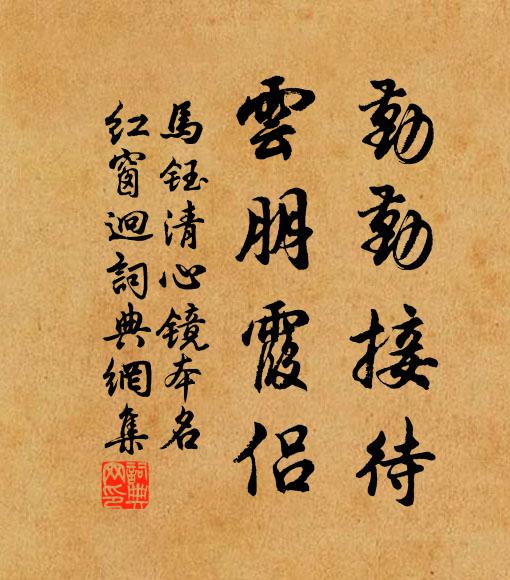 勤勤接待
雲朋霞侣
馬鈺清心鏡本名
紅窗迥詞典網集
詞典网印